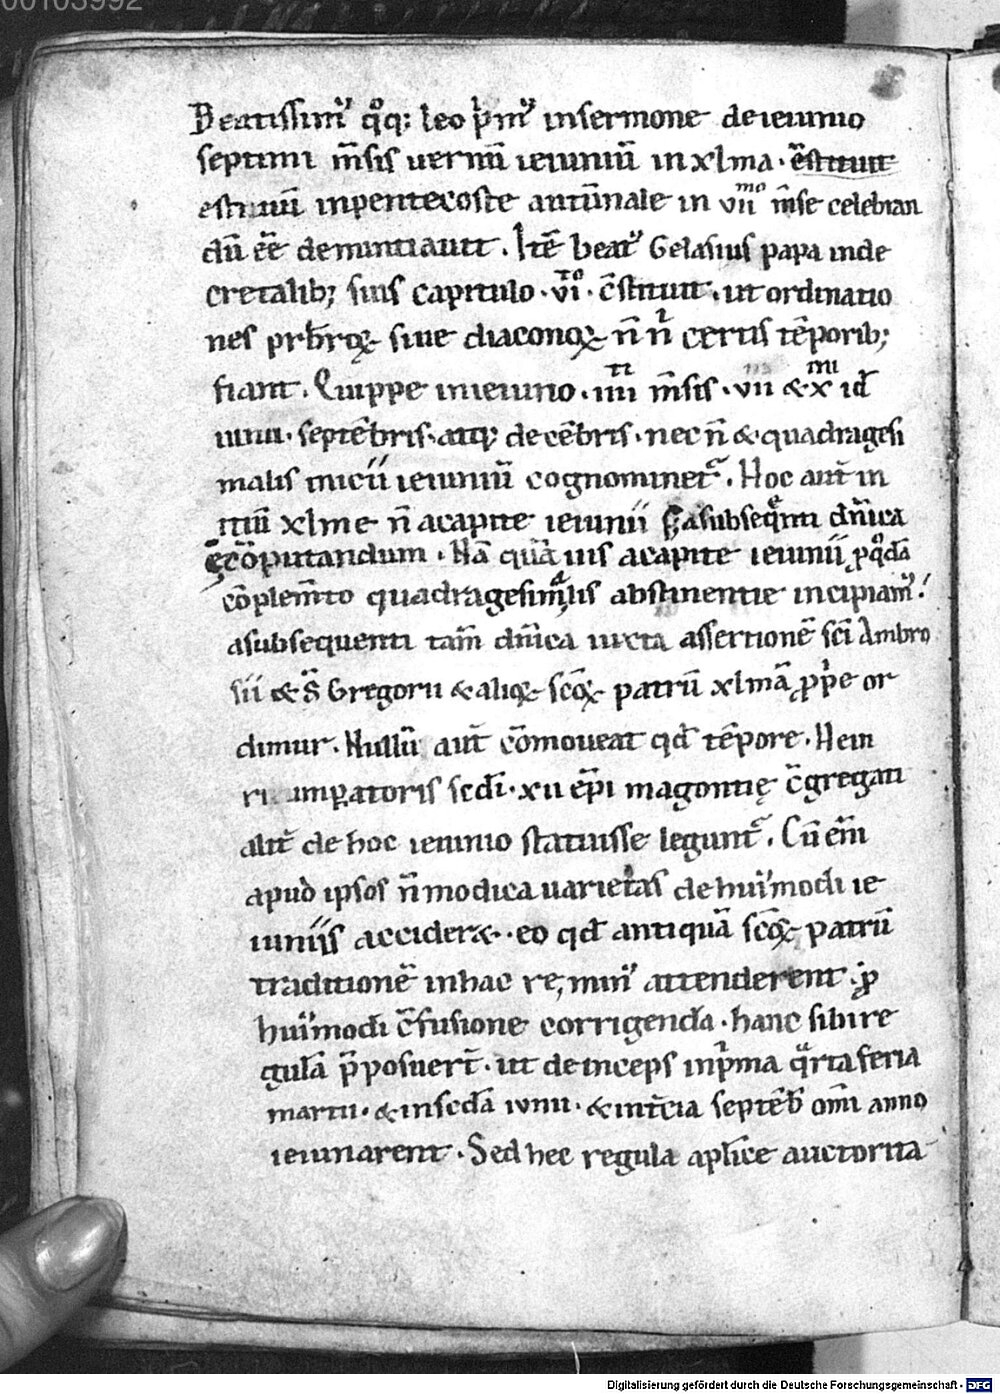 00103992
Beatissim᷒ qͦq: leo p̍m᷒ insermone deieiunio
septimi m̄sis uernū ieiuniū in xlma. c̄stituit
estiuū inpentecoste autūnale in vii^mo m̄se celebran
dū eē denuntiauit. Itē beat᷒ Gelasius papa inde
cretalib; suis capitulo .vi^to. c̄stituit. ut ordinatio
nes prb̄roꝝ siue diaconoꝝ n̄ n̍ certis tēporib;
fiant. Quippe inieiunio. iiii^ti m̄sis. vii & x^mi id̄
iunii. septēbris. atq; decēbris. nec n̄ & quadragesi
malis inicii ieiuniū cognominet᷑. Hoc aut̄ in
itiū xlme n̄ acapite ieiunii asubseq̄nti dn̄ica
cōputandum. Nā quāuis acapite ieiunii
cōplem̄to quadragesimalis abstinentie incipiam᷒!
asubsequenti tam̄ dn̄ica iuxta assertionē sc̄i Ambro
sii & S̄ Gregorii & alioꝝ scōꝝ patrū xlmā ꝓp̍e or
dimur. Nullū aut̄ cōmoueat qd̄ tēpore. Hein
rici imꝑatoris sedī. xii ep̄i magontię c̄gregati
alit̄ de hoc ieiunio statuisse legunt᷑. Cū em̄
apud ipsos n̄ modica uarietas dehui᷒modi ie
iuniis acciderat. eo qd̄ antiquā scōꝝ patrū
traditionē inhac re, min᷒ attenderent. ꝓ
hui᷒modi c̄fusione corrigenda. hanc sibi re
gulā p̄posuert̄. ut deinceps inp̍ma qͣrta feria
martii. & inscdā iunii. & int̄cia septēb̄ om̄i anno
ieiunarent. Sed hec regula aplīce auctorita
Digitalisierung gefördert durch die Deutsche Forschungsgemeinschaft - DFG